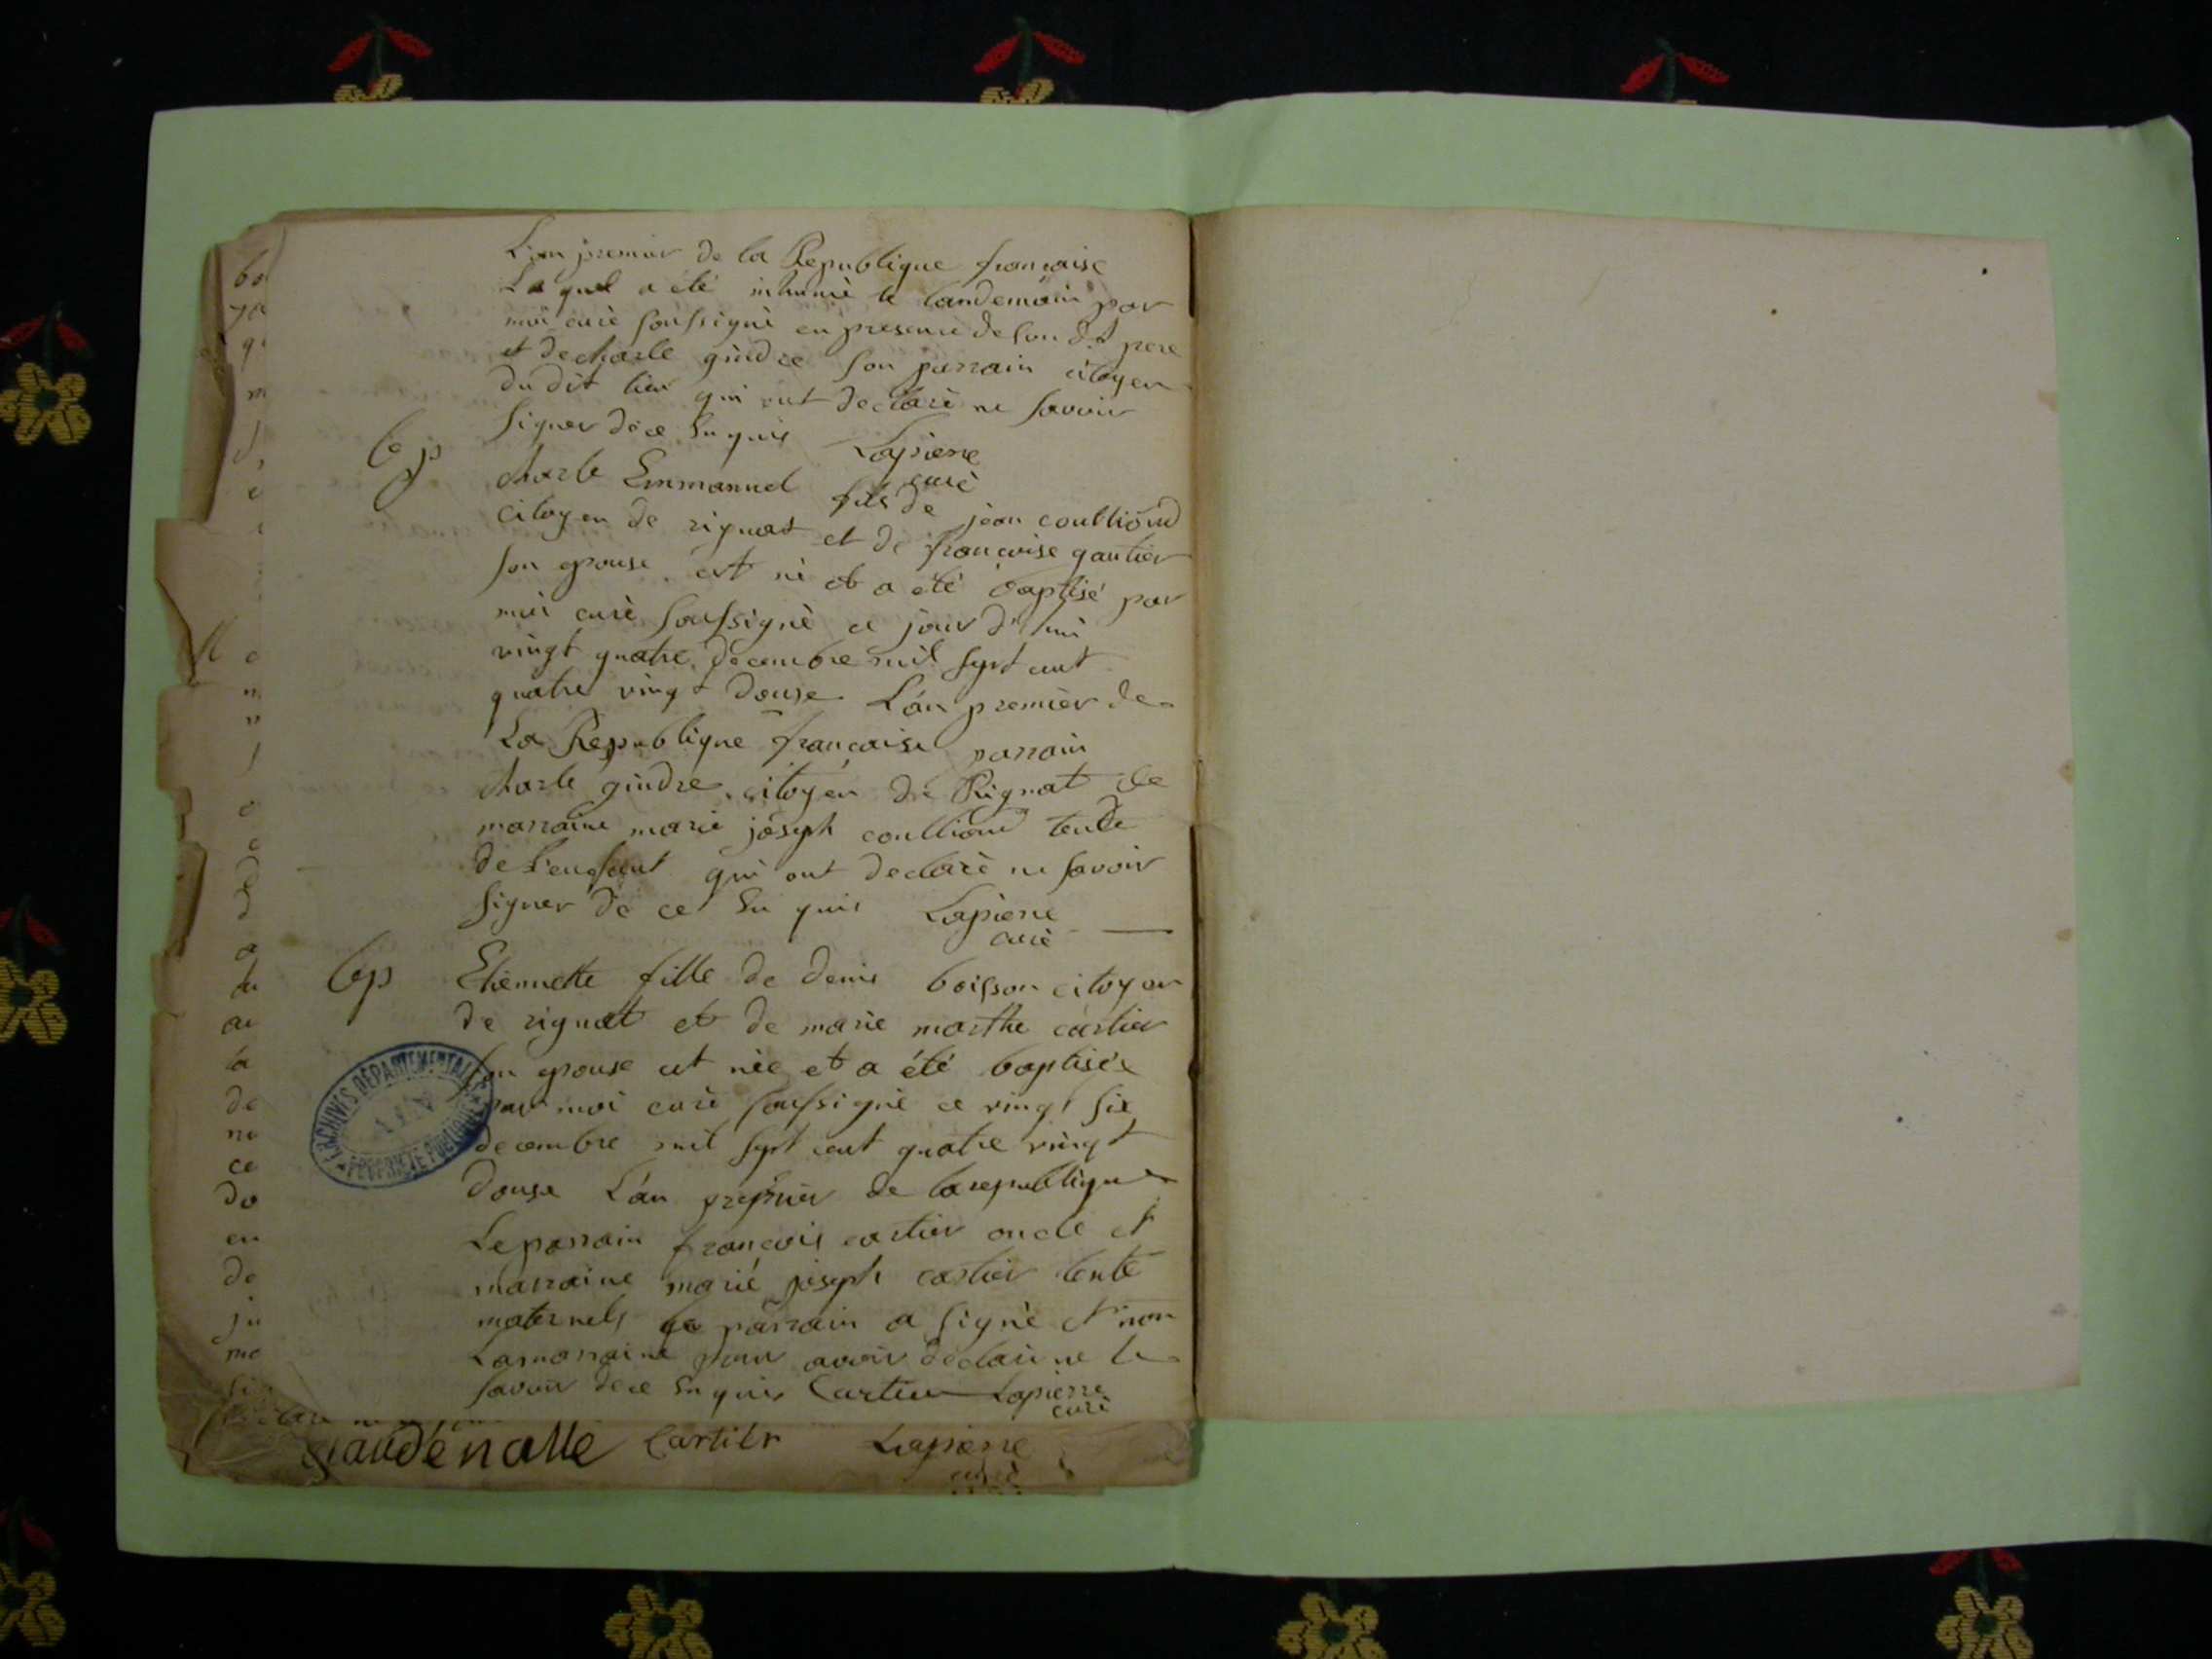 L'an premier de la Republique francaise
Le quel a été inhumé le landemain par
moi curé soussigné en presence de son dt pere
et de charle gindre son parrain citoyen
du dit lieu qui ont declaré ne savoir
signer de ce enquis Lapierre
curé
bp
charle Emmanuel fils de jean coulliond
citoyen de rignat et de francoise gautier
son epouse est né et a été baptisé par
moi curé soussigné ce jour d'hui
vingt quatre decembre mil sept cent
quatre vingt douse L'an premier de
La Republique francaise parrain
charle gindre citoyen de Rignat
marraine marie joseph coulliond tente
de l'enfant qui ont declaré ne savoir
signer de ce enquis Lapierre
curé
bp
Etiennette fille de denis boisson citoyen
de rignat et de marie marthe cartier
son epouse est née et a été baptisée
par moi curé soussigné ce vingt six
decembre mil sept cent quatre vingt
douse L'an premier de la republique
Le parrain francois cartier oncle et
marraine marie joseph cartier tente
maternels le parrain a signé et non
La marraine pour avoir declaré ne le
savoir de ce enquis Cartier Lapierre
curé
Cartier Lapierre
curé
ARCHIVES DÉPARTEMENTALES
AIN
PROPRIÉTÉ PUBLIQUE